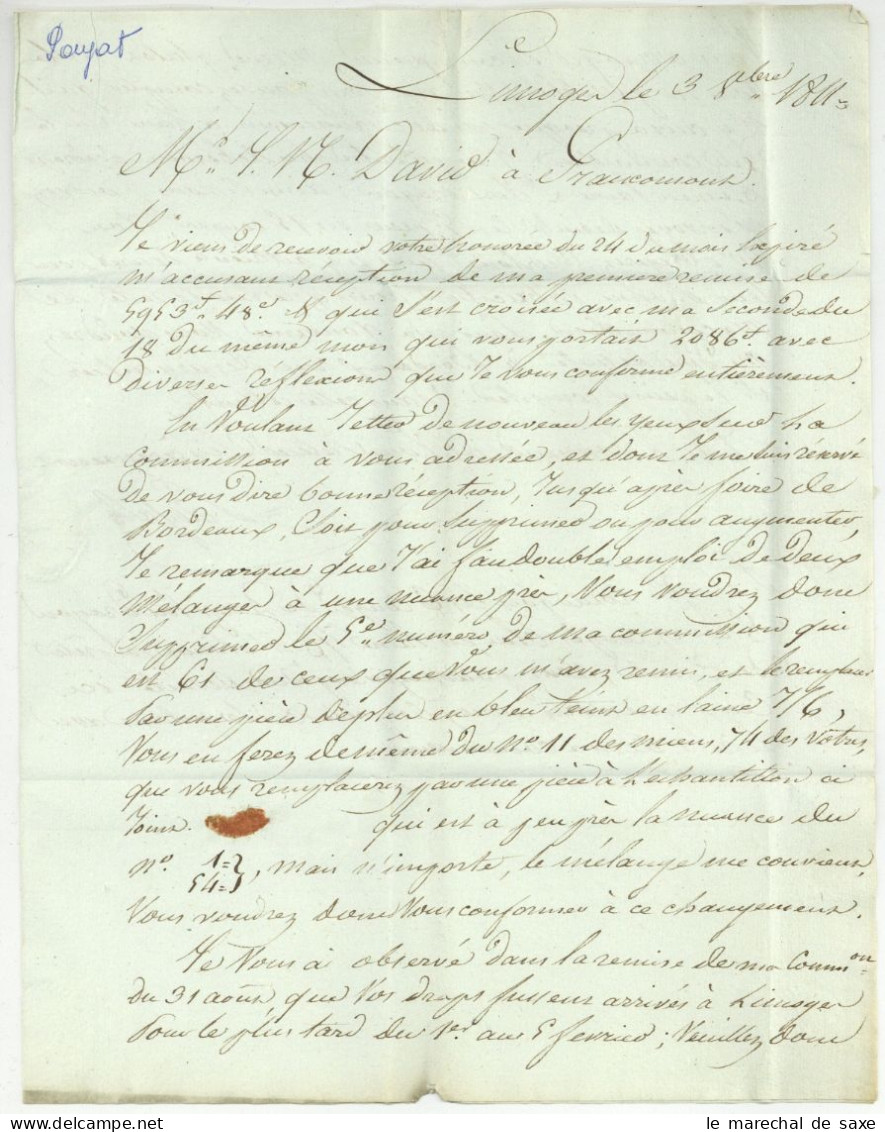 Pouyat
Limoges le 3 8bre 1811=
Mr. J. N. David à Francomont.
Je viens de recevoir votre honorée du 24 du mois Expiré
m'accusant réception de ma première remise de
5953 f. 48 c. qui s'est croisée avec ma Seconde du
18 du même mois qui vous portait 2086 f. avec
diverses réflexions que Je vous confirme entièrement.
En Voulant Jetter de nouveau les yeux Sur la
Commission à vous adressée, et dont Je me Suis réservé
de vous dire bonne réception, Jusqu'après foire de
Bordeaux, Soit pour Supprimer ou pour augmenter,
Je remarque que J'ai fau double emploi de deux
mélanges à une nuance près, Vous voudrez donc
Supprimer le 5e. numéro de ma commission qui
est 61 de ceux que Vous m'avez remis, et le remplacer
Par une pièce de plus en bleu teint en laine 7/6,
Vous en ferez de même du no. 11 des miens, 74 des vôtres,
que vous remplacerez par une pièce à L'echantillon ci
Joint. qui est à peu près la nuance du
no. 1= }, mais n'importe, le mélange me convient,
54=
Vous voudrez donc Vous conformer à ce changement.
Je Vous ai observé dans la remise de ma Common
du 31 aoust que Vos draps fussent arrivés à Limoges
Pour le plus tard du 1er au 5 fevrier; Veuillez donc
le marechal de saxe